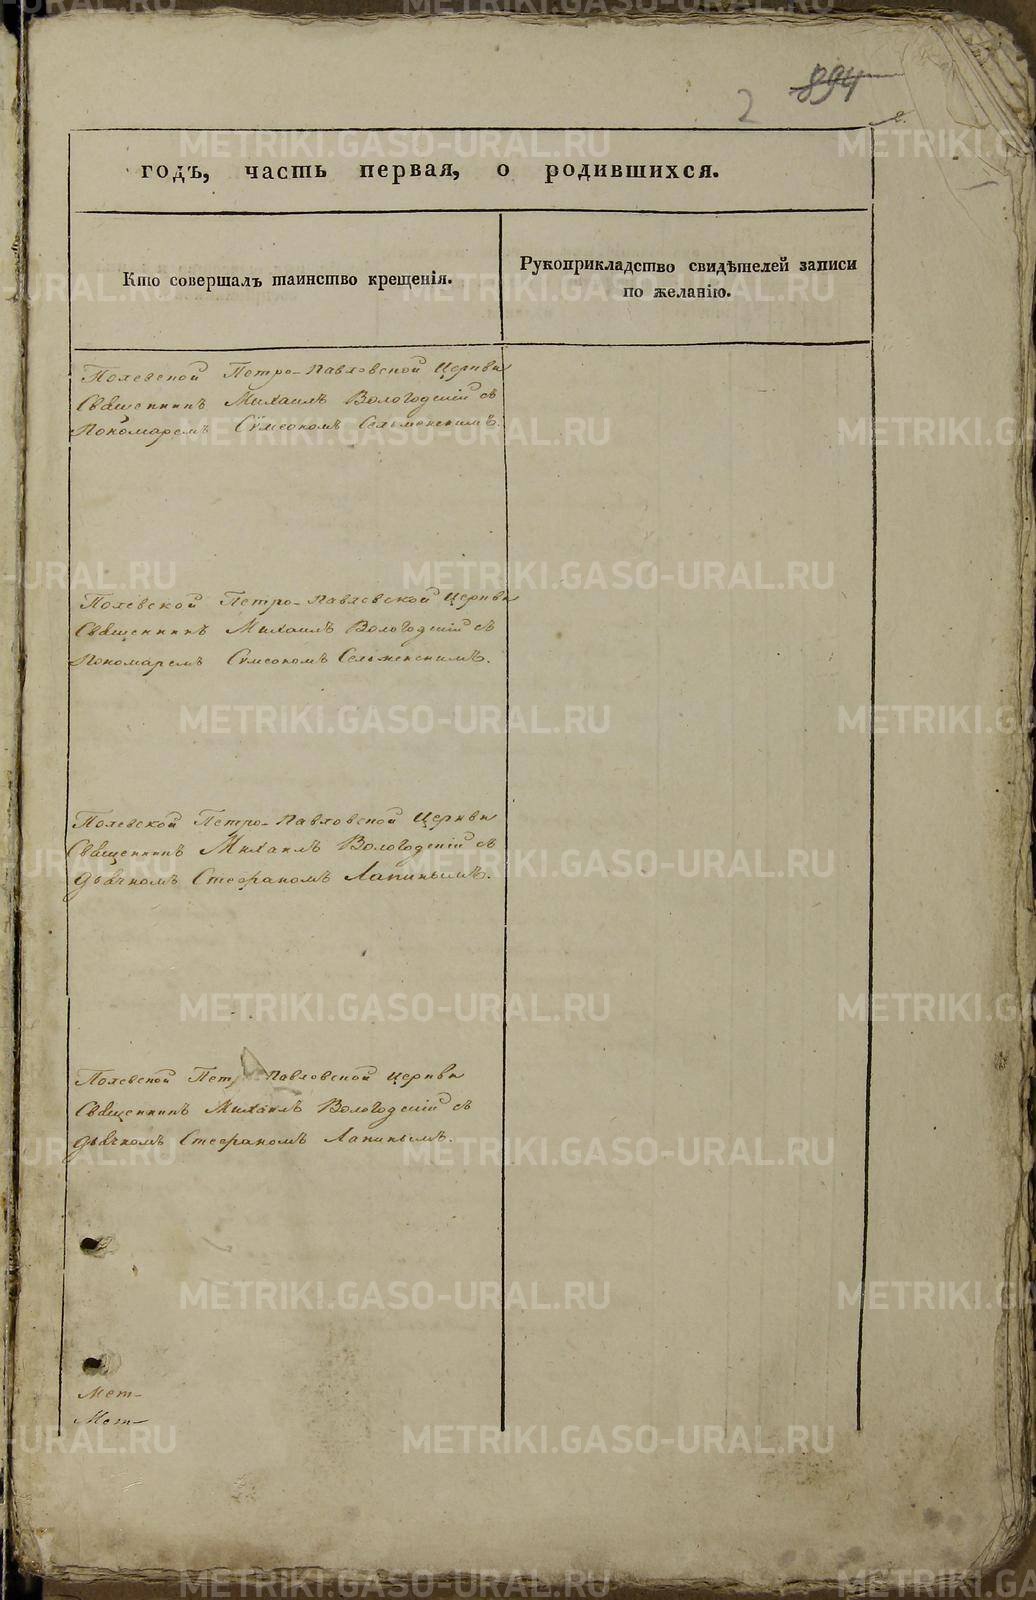 2 894
годъ, часть первая, о родившихся.
Кто совершалъ таинство крещенія.
Рукоприкладство свидѣтелей записи
по желанію.
Полевской Петро-Павловской Церкви
Священникъ Михаилъ Вологодскій съ
Пономаремъ Сѵмеономъ Сельменскимъ.
Полевской Петро-Павловской Церкви
Священникъ Михаилъ Вологодскій съ
Пономаремъ Сѵмеономъ Сельменскимъ.
Полевской Петро-Павловской Церкви
Священникъ Михаилъ Вологодскій съ
дьячкомъ Стефаномъ Лапинымъ.
Полевской Петро-Павловской Церкви
Священникъ Михаилъ Вологодскій съ
дьячкомъ Стефаномъ Лапинымъ.
Мет-
Мет-
METRIKI.GASO-URAL.RU